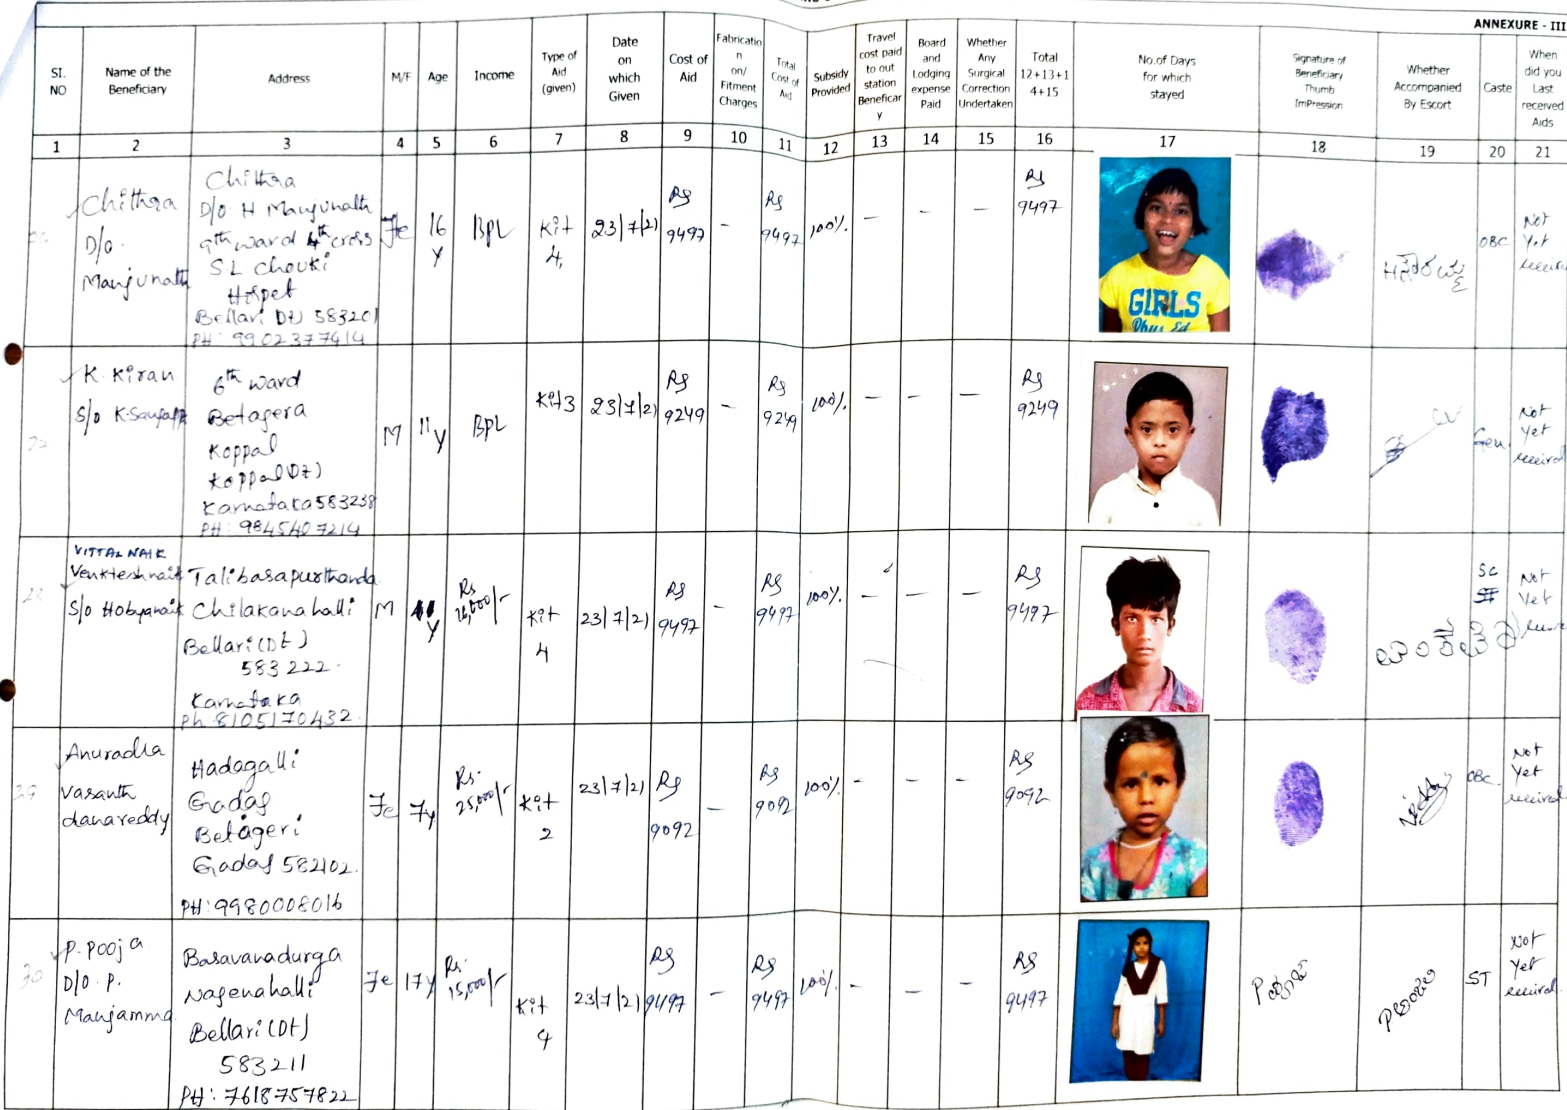 ANNEXURE - III
SI. NO
Name of the Beneficiary
Address
M/F
Age
Income
Type of Aid (given)
Date on which Given
Cost of Aid
Fabricatio n on/ Fitment Charges
Total Cost of Aid
Subsidy Provided
Travel cost paid to out station Beneficar y
Board and Lodging expense Paid
Whether Any Surgical Correction Undertaken
Total 12+13+1 4+15
No.of Days for which stayed
Signature of Beneficiary Thumb ImPression
Whether Accompanied By Escort
Caste
When did you Last received Aids
1 2 3 4 5 6 7 8 9 10 11 12 13 14 15 16 17 18 19 20 21
Chithra
D/o.
Manjunath
Chithra
D/o H Manjunath
9th ward 4th cross
S L Chouki
Hospet
Bellari Dt) 583201
PH: 9902377414
Fe
16 y
BPL
Kit 4,
23/7/21
Rs 9497
-
Rs 9497
100%.
-
-
-
Rs 9497
GIRLS
Phys Ed
OBC
Not Yet
K. Kiran
S/o
6th ward
Betagera
Koppal
Koppal (Dt)
Karnataka 583238
PH: 9845407214
M
11 y
BPL
Kit 3
23/7/21
Rs 9249
-
Rs 9249
100%.
-
-
-
Rs 9249
Gen
Not Yet
28
VITTAL NAIK
Venkteshnaik
S/o Hobyanaik
Talibasapurthanda
Chilakanahalli
Bellari (Dt)
583222.
Karnataka
Ph 8105170432
M
y
Rs 26,000/-
Kit 4
23/7/21
Rs 9497
-
Rs 9497
100%.
-
-
-
Rs 9497
SC
Not Yet
29
Anuradha
Vasanth
danareddy
Hadagalli
Gadag
Betageri
Gadag 582102.
PH: 9980008016
Fe
7y
Rs. 25,000/-
Kit 2
23/7/21
Rs 9092
-
Rs 9092
100%.
-
-
-
Rs 9092
OBC.
Not Yet
30
P. Pooja
D/o. P.
Manjamma
Basavanadurga
Nagenahalli
Bellari (Dt)
583211
PH: 7618757822
Fe
17y
Rs. 15,000/-
Kit 4
23/7/21
Rs 9497
-
Rs 9497
100%.
-
-
-
Rs 9497
ST
Not Yet